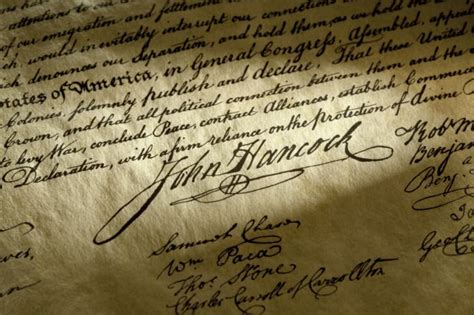 of our emigration and
would inevitably interrupt our connections
which denounces our Separation, and hold them, as we hold the
tates of America, in General Congress, Assembled, appea
Colonies, solemnly publish and declare, That these United
Crown, and that all political connection between them and the
to levy War, conclude Peace, contract Alliances, establish Commer
Declaration, with a firm reliance on the protection of divine
John Hancock
Rob M
Benjam
Benj
Samuel Chase
Wm Paca
Thos Stone
Charles Carroll of Carrollton
Geo